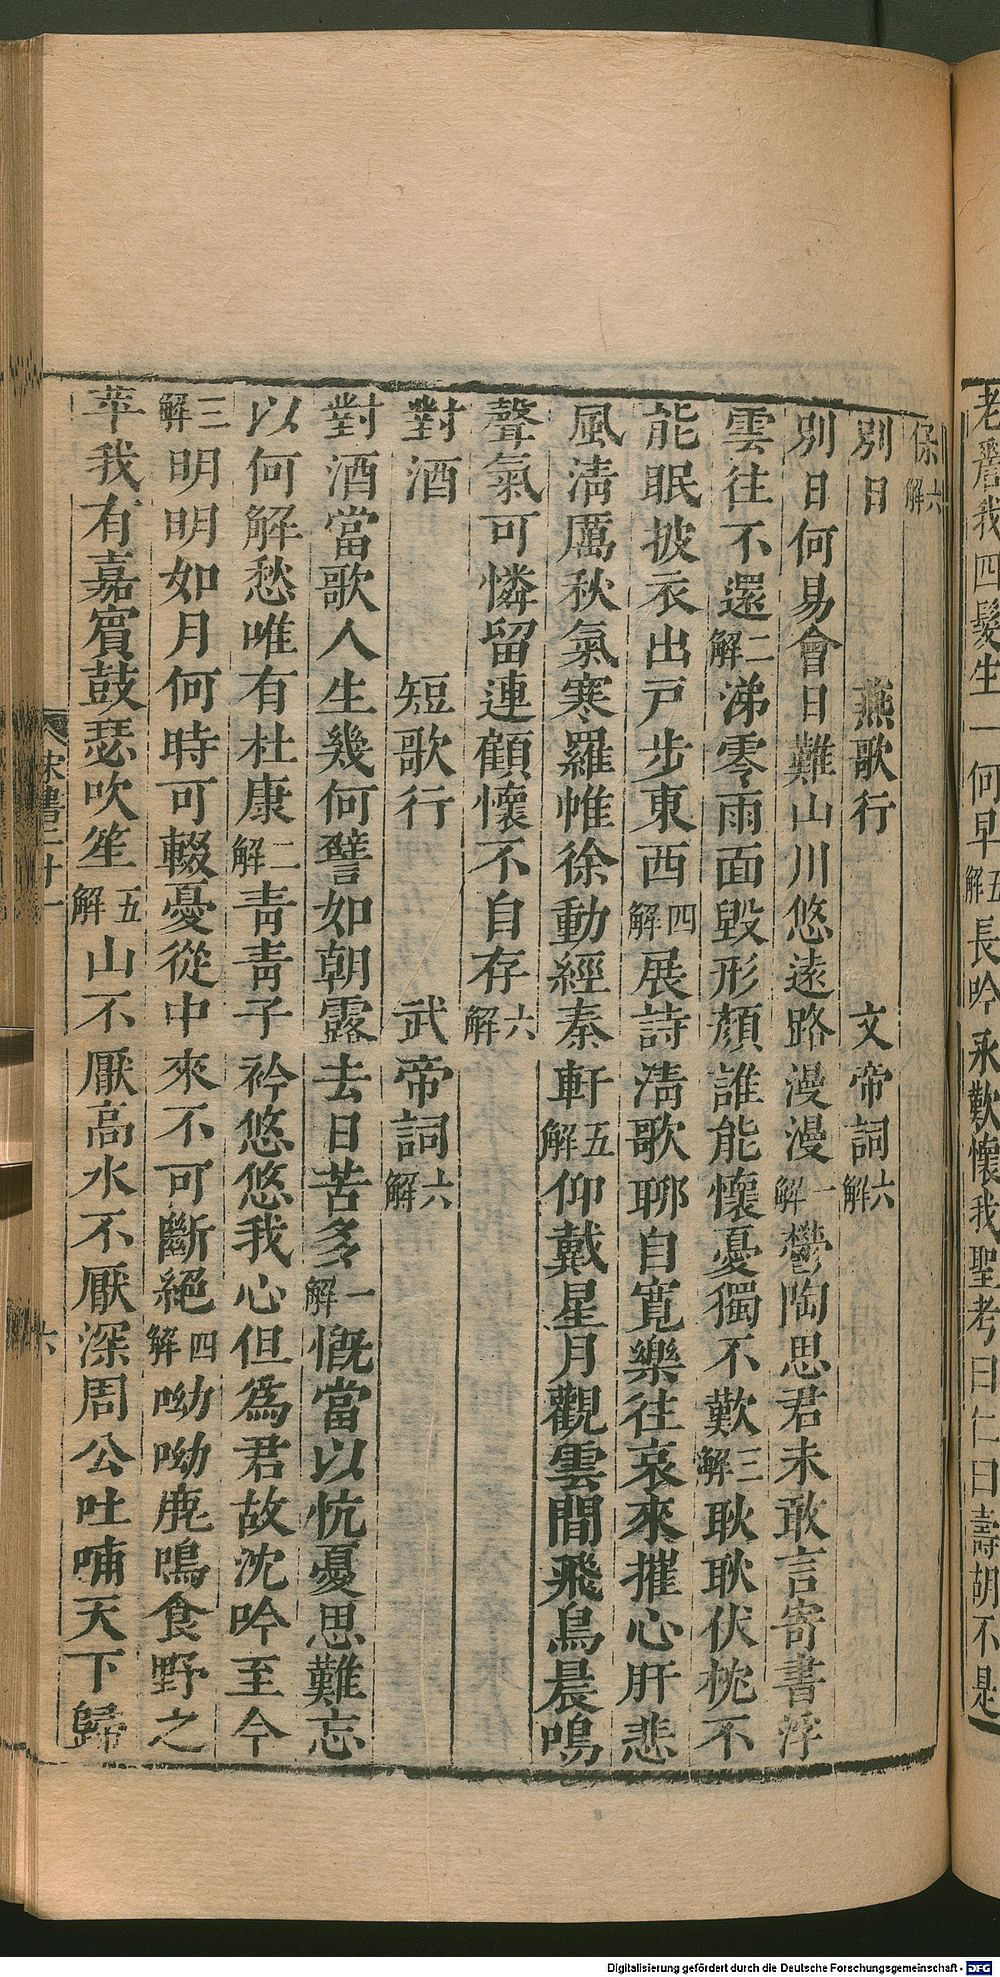 老居我四髮生一何早五解長吟永歎懷我聖考曰仁曰壽胡不是
保六解
別日 燕歌行 文帝詞六解
別日何易會日難山川悠遠路漫漫一解鬱陶思君未敢言寄書浮
雲往不還二解涕零雨面毀形顏誰能懷憂獨不歎三解耿耿伏枕不
能眠披衣出戸步東西四解展詩清歌聊自寬樂往哀來摧心肝悲
風清厲秋氣寒羅帷徐動經秦軒五解仰戴星月觀雲間飛鳥晨鳴
聲氣可憐留連顧懷不自存六解
對酒 短歌行 武帝詞六解
對酒當歌人生幾何譬如朝露去日苦多一解慨當以忼憂思難忘
以何解愁唯有杜康二解青青子衿悠悠我心但為君故沈吟至今
三解明明如月何時可輟憂從中來不可斷絕四解呦呦鹿鳴食野之
苹我有嘉賓鼓瑟吹笙五解山不厭高水不厭深周公吐哺天下歸
宋書二十一 六
Digitalisierung gefördert durch die Deutsche Forschungsgemeinschaft - DFG